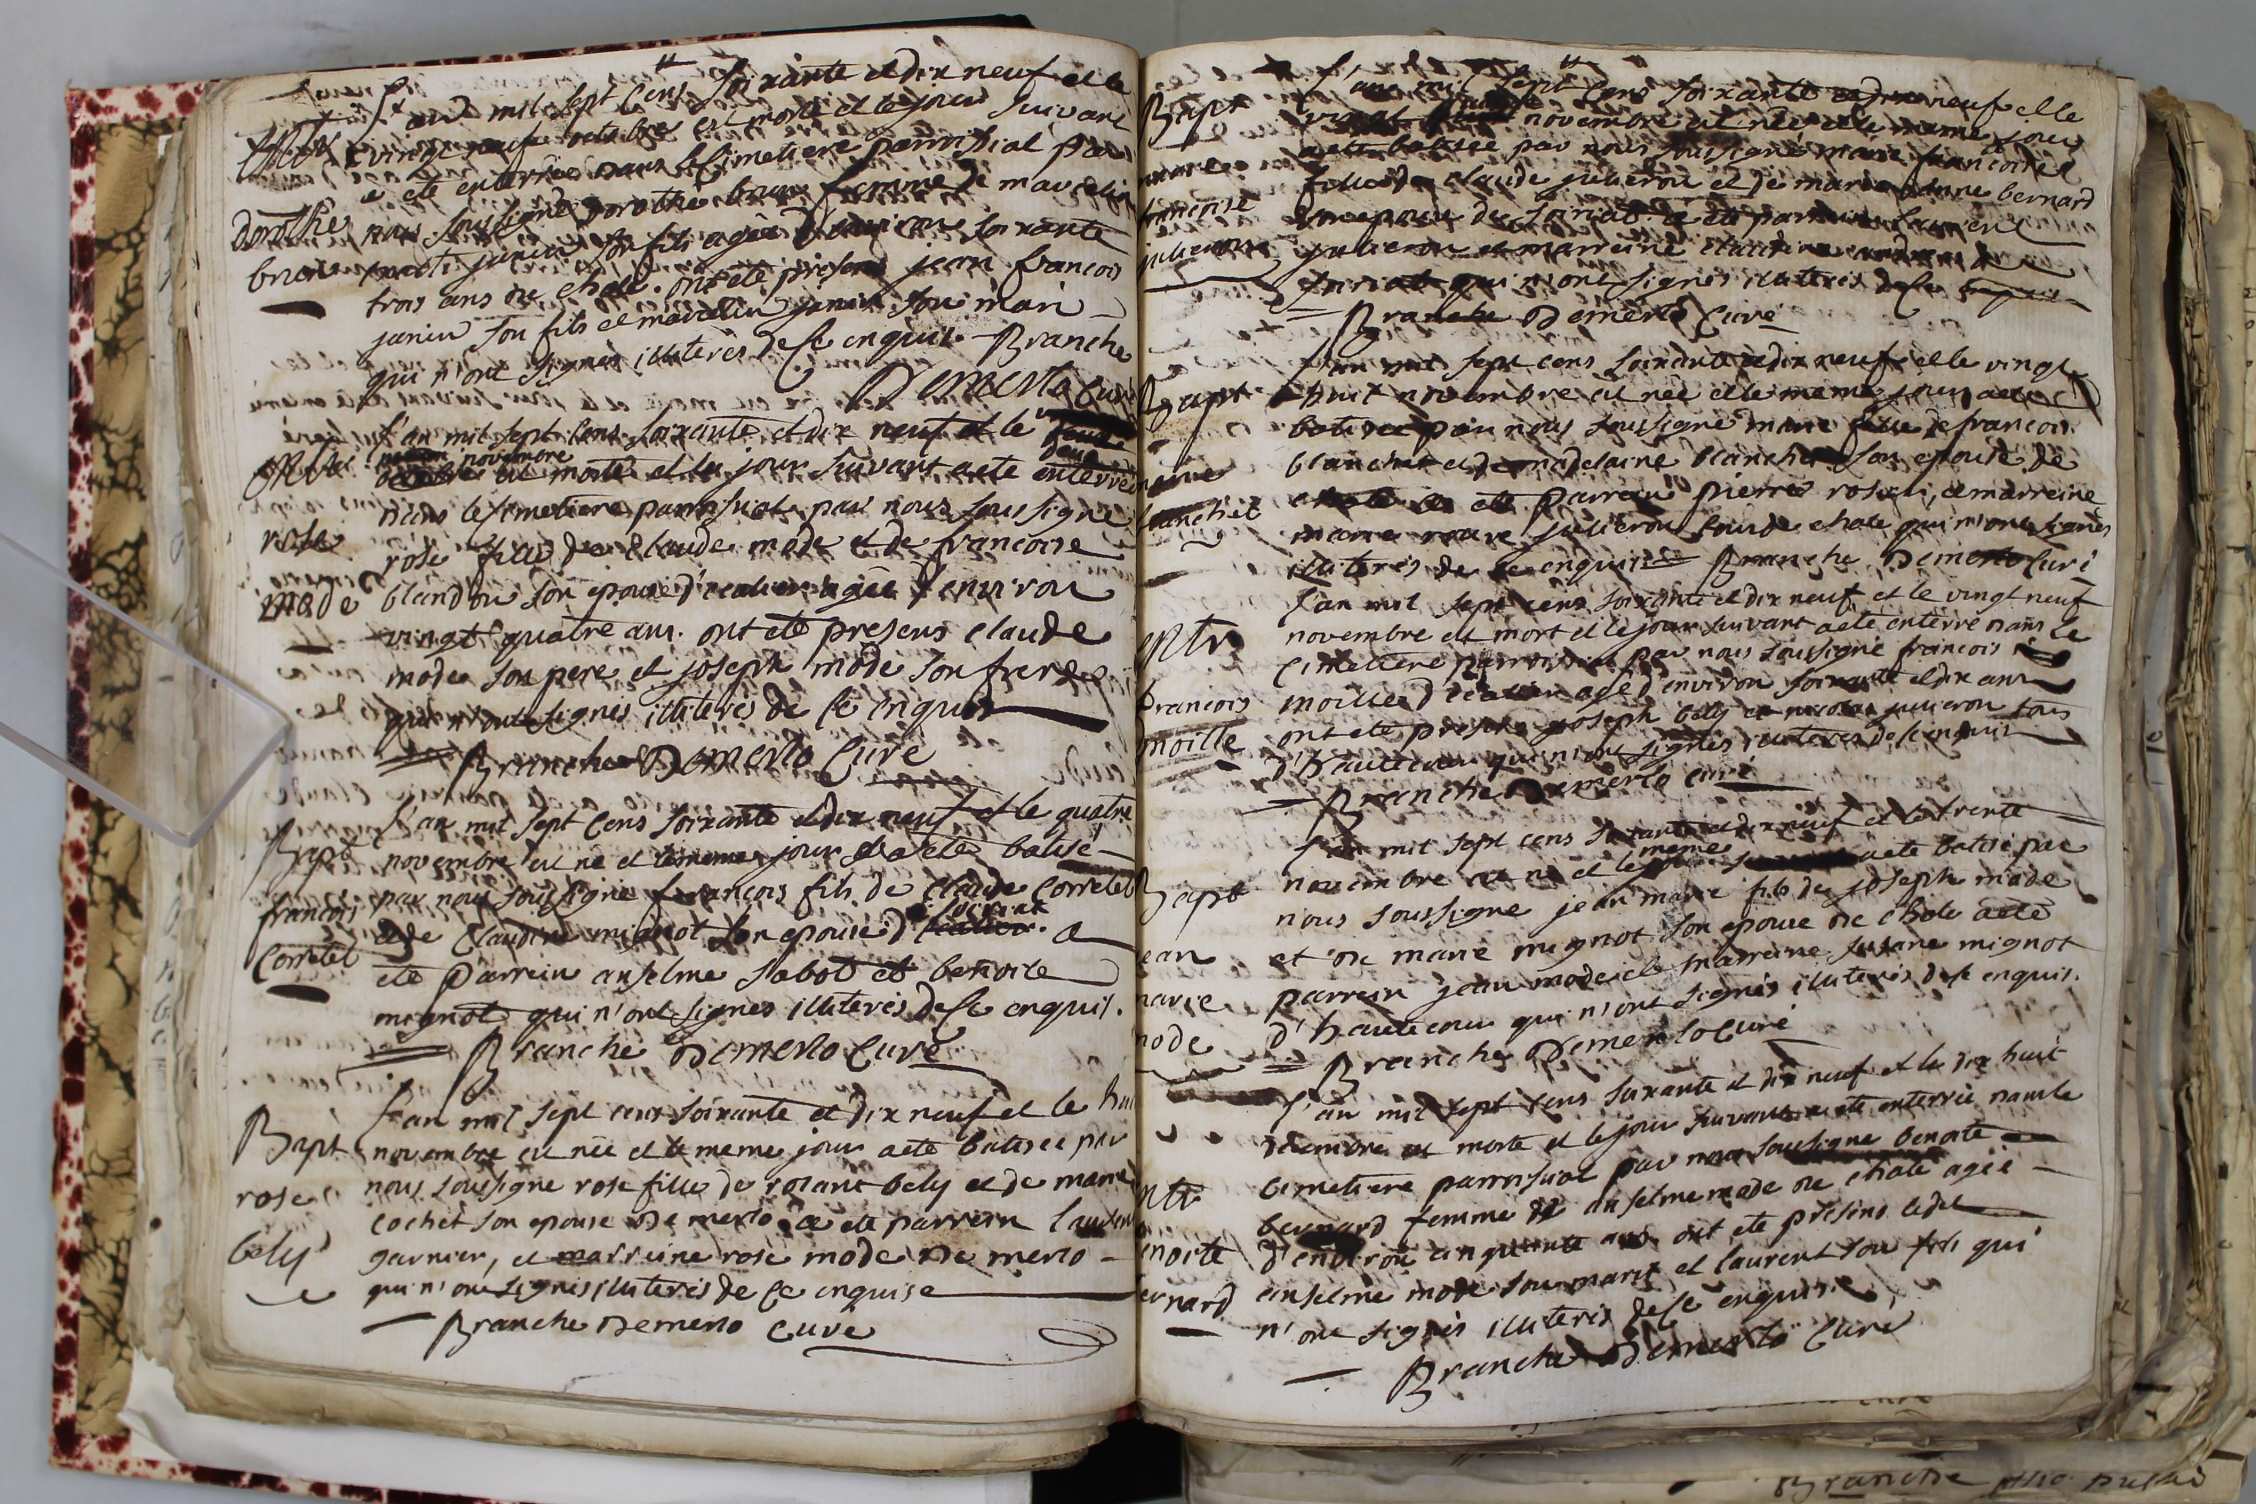 l'an mil sept cens soixante et dix neuf et le
vingt neuf octobre est morte et le jour suivant
a eté enterrée dans le cimetiere parroissial par
dorothée nous soussigné dorothée brun femme de marcelin
brun janin son fils agée d'environ soixante
trois ans de chale. ont eté presens jean francois
janin son fils et marcelin janin son mari
qui n'ont signés illiterés de ce enquis. Branche
Demerlo Curé
l'an mil sept cens soixante et dix neuf et le
novembre
deux
octobre est morte et le jour suivant a eté enterrée
dans le cimetiere parroissial par nous soussigné
rose rose fille de Claude mode et de francoise
mode blandon son epouse d'ecalier agée d'environ
vingt quatre ans. ont eté presens Claude
mode son pere et joseph mode son frere
qui n'ont signés illiterés de ce enquis
Branche Demerlo Curé
l'an mil sept cens soixante et dix neuf et le quatre
Bapt novembre est né et le meme jour a eté batisé
francois par nous soussigné francois fils de Claude Corretel
Corretel et de Claudine mignot son epouse d' soiriat a
eté parrein anselme sabot et benoite
mignot qui n'ont signés illiterés de ce enquis.
Branche Demerlo Curé
l'an mil sept cens soixante et dix neuf et le huit
Bapt novembre est née et le meme jour a eté batisée par
rose nous soussigné rose fille de roland bely et de marie
cochet son epouse de merlo a eté parrein laurent
bely garnier, et marreine rose mode de merlo
qui n'ont signés illiterés de ce enquise
Branche Demerlo Curé
l'an mil sept cens soixante et dix neuf et le
Bapt vingt novembre est née et le meme jour
marie a eté batisée par nous soussigné marie francoise
francoise fille de Claude julieron et de marie bernard
julieron son epouse de soiriat a eté parrein laurent
julieron et marreine Claudine de
soiriat qui n'ont signés illiterés de ce enquis
Branche Demerlo Curé
l'an mil sept cens soixante et dix neuf et le vingt
Bapt huit novembre est née et le meme jour a eté
batisée par nous soussigné marie fille de francois
marie blanchet et de madelaine blanchet son epouse de
blanchet chale a eté parrein pierre et marreine
marie julieron tous de chale qui n'ont signés
illiterés de ce enquis Branche Demerlo Curé
l'an mil sept cens soixante et dix neuf et le vingt neuf
novembre est mort et le jour suivant a eté enterré dans le
cimetiere parroissial par nous soussigné francois
francois moille d'ecalier agé d'environ soixante et dix ans
moille ont eté presens joseph bely et nicolas julieron tous
d'hautecour qui n'ont signés illiterés de ce enquis
Branche Demerlo Curé
l'an mil sept cens soixante et dix neuf et le trente
meme
Bapt novembre est né et le jour a eté batisé par
nous soussigné jean marie fils de joseph mode
jean et de marie mignot son epouse de chale a eté
marie parrein jean mode et marreine susane mignot
mode d'hautecour qui n'ont signés illiterés de ce enquis.
Branche Demerlo Curé
l'an mil sept cens soixante et dix neuf et le dix huit
decembre est morte et le jour suivant a eté enterrée dans le
cimetiere parroissial par nous soussigné benoite
bernard femme de anselme mode de chale agée
benoite d'environ cinquante ans. ont eté presens ledit
bernard anselme mode son marit et laurent son fils qui
n'ont signés illiterés de ce enquis.
Branche Demerlo Curé